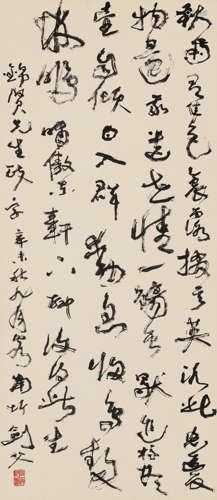 秋菊有佳色裛露掇其英汎此忘憂
物遠我遺世情一觴雖獨進杯盡
壺自傾日入群動息歸鳥趨
林鳴嘯傲東軒下聊復得此生
錦賢先生政字辛未秋九月客南圻劍父